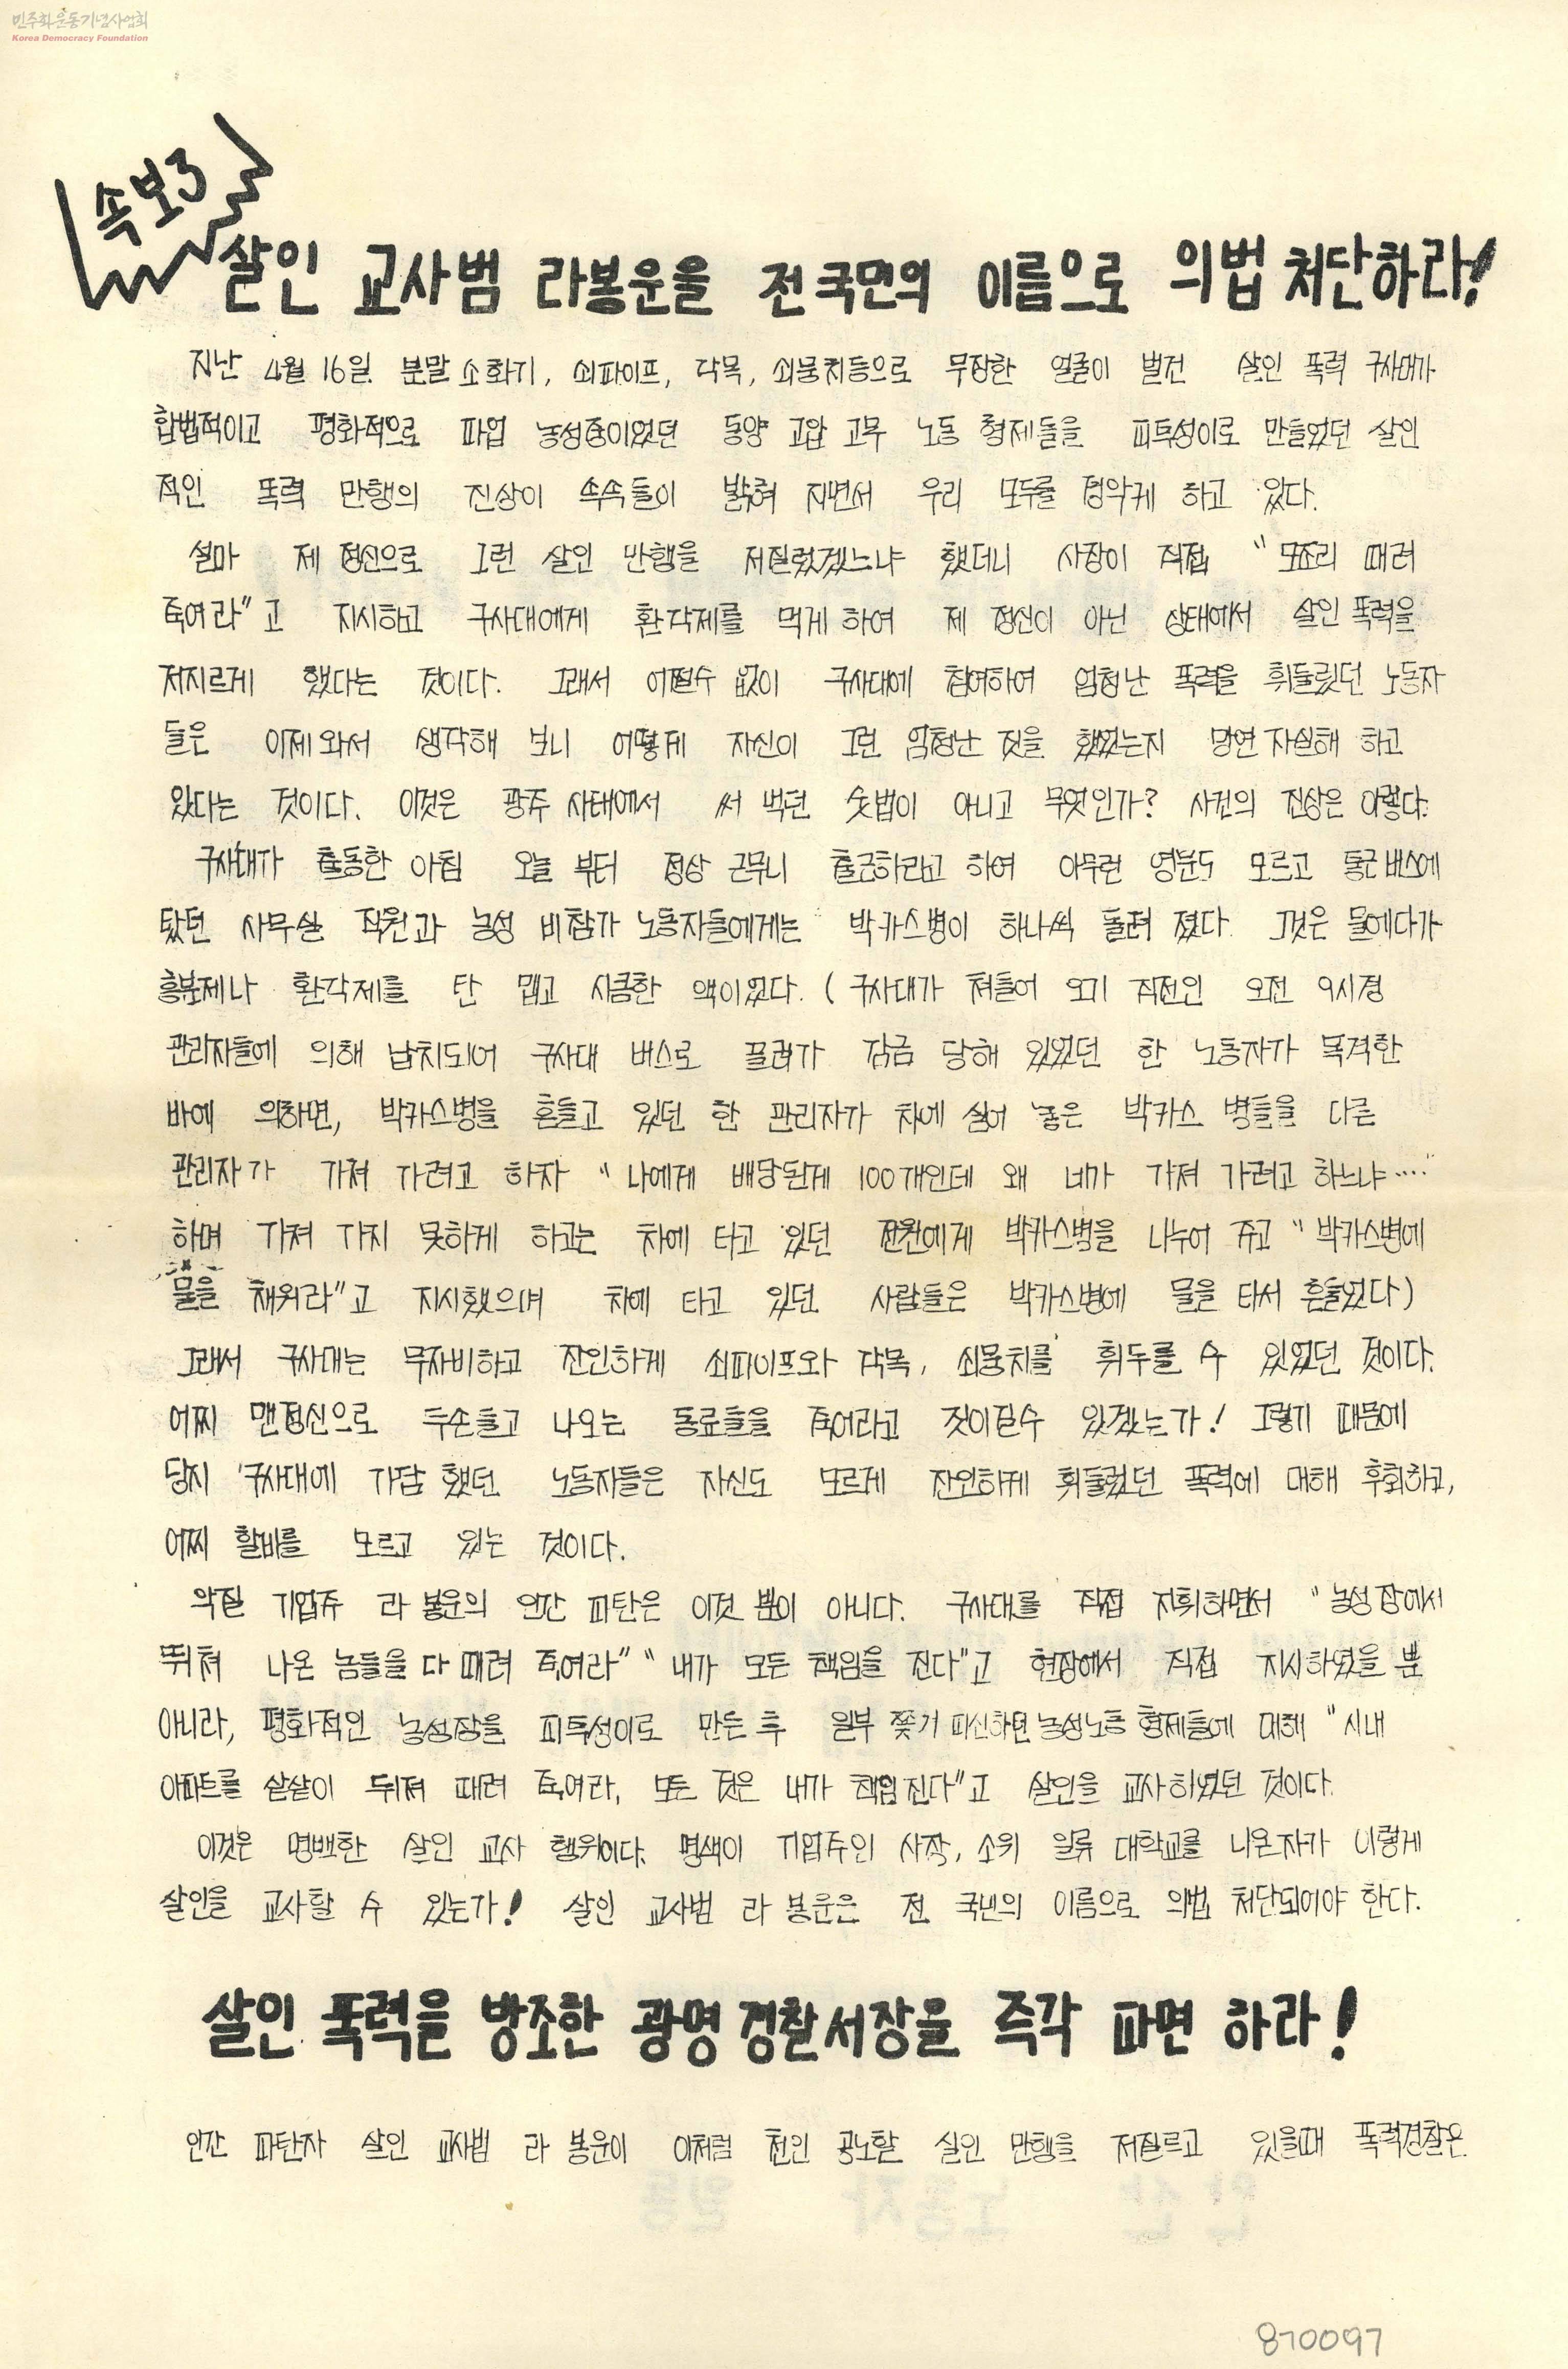 민주화운동기념사업회
Korea Democracy Foundation
속보3
살인 교사범 라봉운을 전국민의 이름으로 의법 처단하라!
지난 4월 16일 분말소화기, 쇠파이프, 각목, 쇠뭉치등으로 무장한 얼굴이 벌건 살인 폭력 구사대가
합법적이고 평화적으로 파업 농성중이었던 동양 고압 고무 노동 형제들을 피투성이로 만들었던 살인
적인 폭력 만행의 진상이 속속들이 밝혀 지면서 우리 모두를 경악케 하고 있다.
설마 제 정신으로 그런 살인 만행을 저질렀겠느냐 했더니 사장이 직접 "모조리 때려
죽여라"고 지시하고 구사대에게 환각제를 먹게하여 제 정신이 아닌 상태에서 살인폭력을
저지르게 했다는 것이다. 그래서 어쩔수 없이 구사대에 참여하여 엄청난 폭력을 휘둘릿던 노동자
들은 이제와서 생각해 보니 어떻게 자신이 그런 엄청난 짓을 했었는지 망연자실해 하고
있다는 것이다. 이것은 광주 사태에서 써 먹던 숫법이 아니고 무엇인가? 사건의 진상은 이렇다.
구사대가 출동한 아침 오늘 부터 정상 근무니 출근하라고 하여 아무런 영문도 모르고 통근버스에
탔던 사무실 직원과 농성 비참가 노동자들에게는 박카스병이 하나씩 돌려 졌다. 그것은 물에다가
흥분제나 환각제를 탄 맵고 시금한 액이었다. (구사대가 쳐들어 오기 직전인 오전 9시경
관리자들에 의해 납치되어 구사대 버스로 끌려가 감금 당해 있었던 한 노동자가 목격한
바에 의하면, 박카스병을 흔들고 있던 한 관리자가 차에 실어 놓은 박카스 병들을 다른
관리자가 가져 가려고 하자 "나에게 배당된게 100개인데 왜 네가 가져 가려고 하느냐····"
하며 가져 가지 못하게 하고는 차에 타고 있던 전원에게 박카스병을 나누어 주고 "박카스병에
물을 채워라"고 지시했으며 차에 타고 있던 사람들은 박카스병에 물을 타서 흔들었다)
그래서 구사대는 무자비하고 잔인하게 쇠파이프와 각목, 쇠뭉치를 휘두를 수 있었던 것이다.
어찌 맨정신으로 두손들고 나오는 동료들을 죽어라고 짓이길수 있겠는가! 그렇기 때문에
당시 구사대에 가담 했던 노동자들은 자신도 모르게 잔인하게 휘둘렀던 폭력에 대해 후회하고,
어찌 할바를 모르고 있는 것이다.
악질 기업주 라 봉운의 인간 파탄은 이것 뿐이 아니다. 구사대를 직접 지휘하면서 "농성장에서
뛰쳐 나온 놈들을 다 때려 죽여라" "내가 모든 책임을 진다"고 현장에서 직접 지시하였을 뿐
아니라, 평화적인 농성장을 피투성이로 만든 후 일부 쫓겨 피신하던 농성노동 형제들에 대해 "시내
아파트를 샅샅이 뒤져 때려 죽여라, 모든 것은 내가 책임진다"고 살인을 교사하였던 것이다.
이것은 명백한 살인 교사 행위이다. 명색이 기업주인 사장, 소위 일류 대학교를 나온자가 이렇게
살인을 교사할 수 있는가! 살인 교사범 라 봉운은 전 국민의 이름으로 의법 처단되어야 한다.
살인 폭력을 방조한 광명경찰서장을 즉각 파면 하라!
인간 파탄자 살인 교사범 라 봉운이 이처럼 천인 공노할 살인 만행을 저질르고 있을때 폭력경찰은
870097